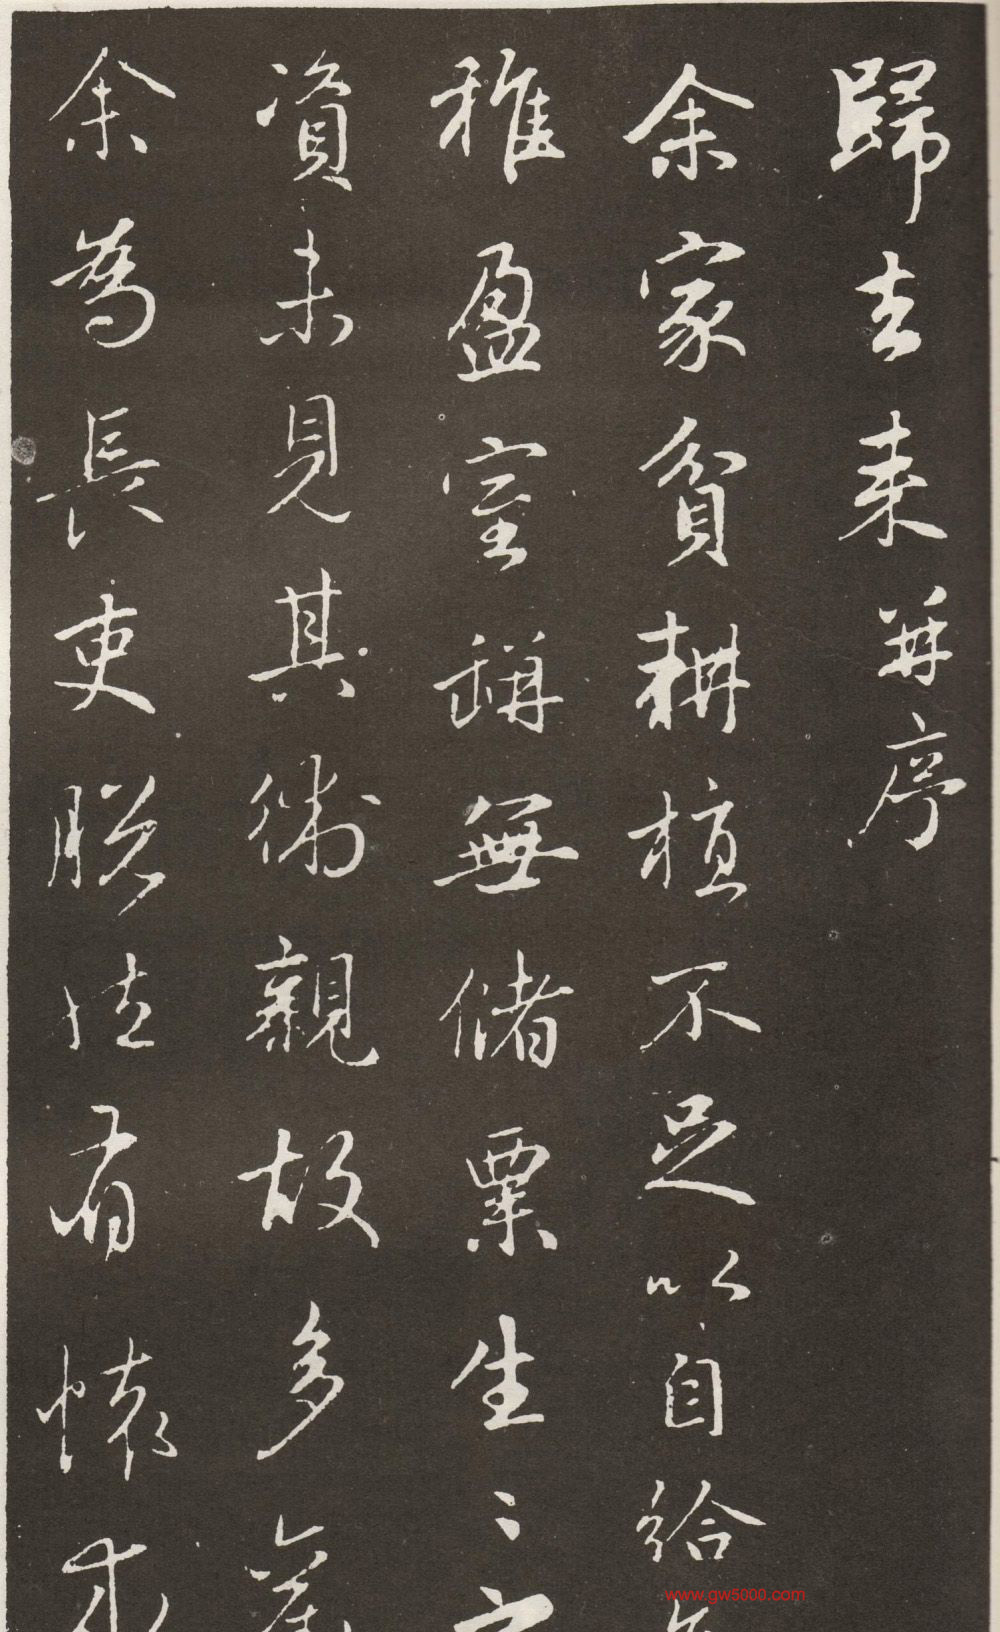 歸去来并序
余家貧耕植不足以自給
稚盈室缾無儲粟生〻
資未見其術親故多
余為長吏脱然有懷求
www.gw5000.com